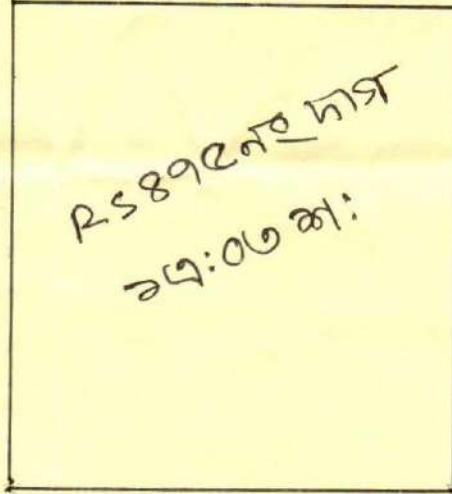 RS ৪৭৫নং দাগ
১এ:০৩ শ: